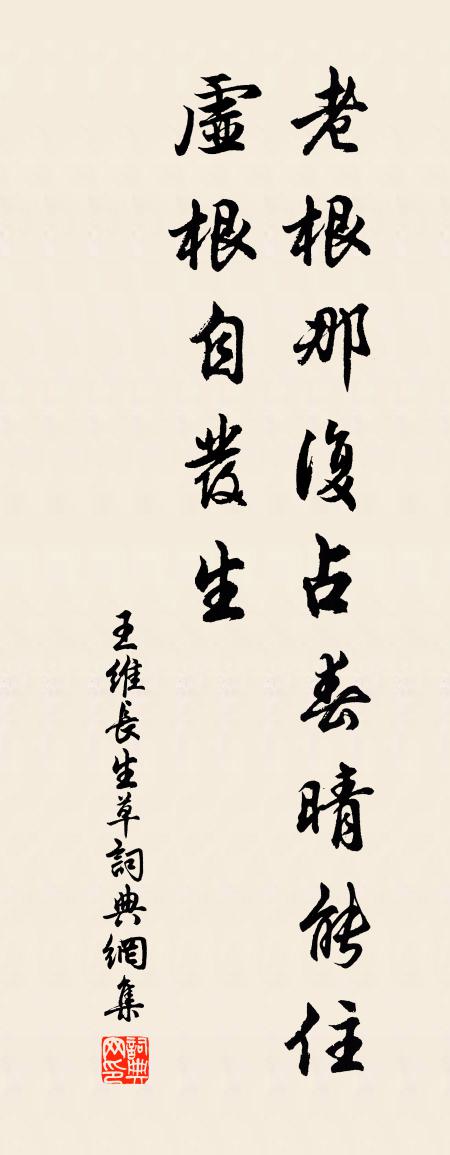 老根那復占春晴能住
虛根自發生
王維長生草詞典網集
詞典网印